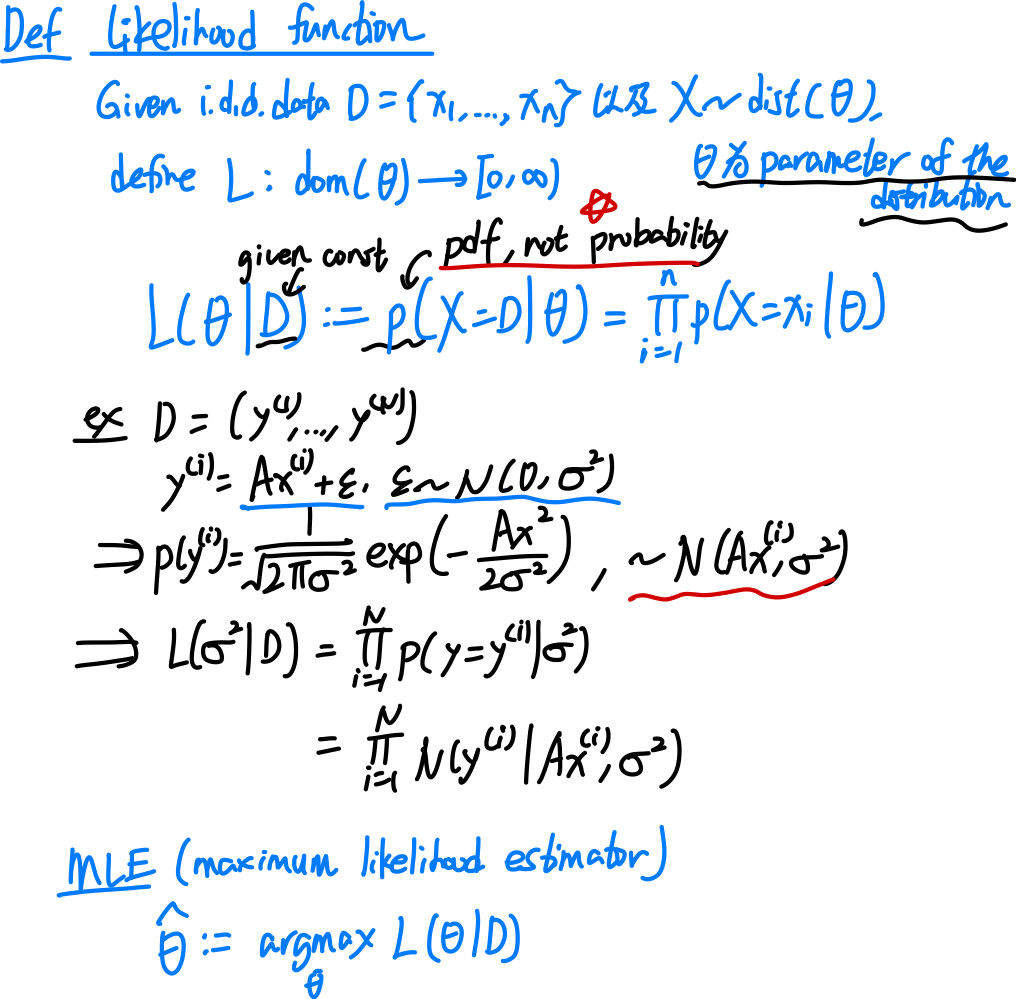 Def Likelihood function
Given i.i.d. data D = {x₁, ..., xₙ} 以及 X ~ dist(θ),
define L : dom(θ) → [0, ∞)
θ为 parameter of the
distribution
given const
pdf, not probability
L(θ|D) := p(X=D|θ) = ∏_{i=1}^{n} p(X=xᵢ|θ)
ex D = (y⁽¹⁾, ..., y⁽ᴺ⁾)
y⁽ⁱ⁾ = Ax⁽ⁱ⁾ + ε, ε ~ N(0, σ²)
⇒ p(y⁽ⁱ⁾) = 1/√(2πσ²) exp(− Ax²/2σ²), ~ N(Ax⁽ⁱ⁾, σ²)
⇒ L(σ²|D) = ∏_{i=1}^{N} p(y=y⁽ⁱ⁾|σ²)
= ∏_{i=1}^{N} N(y⁽ⁱ⁾|Ax⁽ⁱ⁾, σ²)
MLE (maximum likelihood estimator)
θ̂ := argmax_θ L(θ|D)